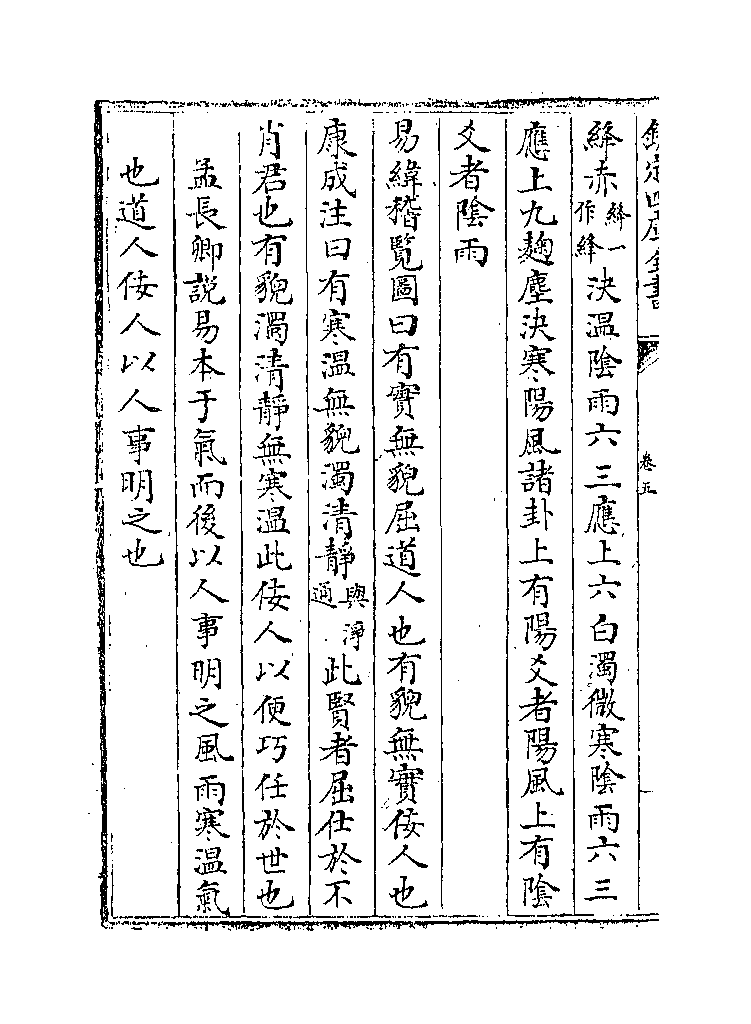 欽定四庫全書
卷五
絳赤絳一作絳決温隂雨六三應上六白濁微寒隂雨六三
應上九麹塵決寒陽風諸卦上有陽爻者陽風上有隂
爻者隂雨
易緯稽覽圖曰有實無貌屈道人也有貌無實佞人也
康成注曰有寒温無貌濁清靜與淨通此賢者屈仕於不
肖君也有貌濁清靜無寒温此佞人以便巧任於世也
孟長卿説易本于氣而後以人事明之風雨寒温氣
也道人佞人以人事明之也